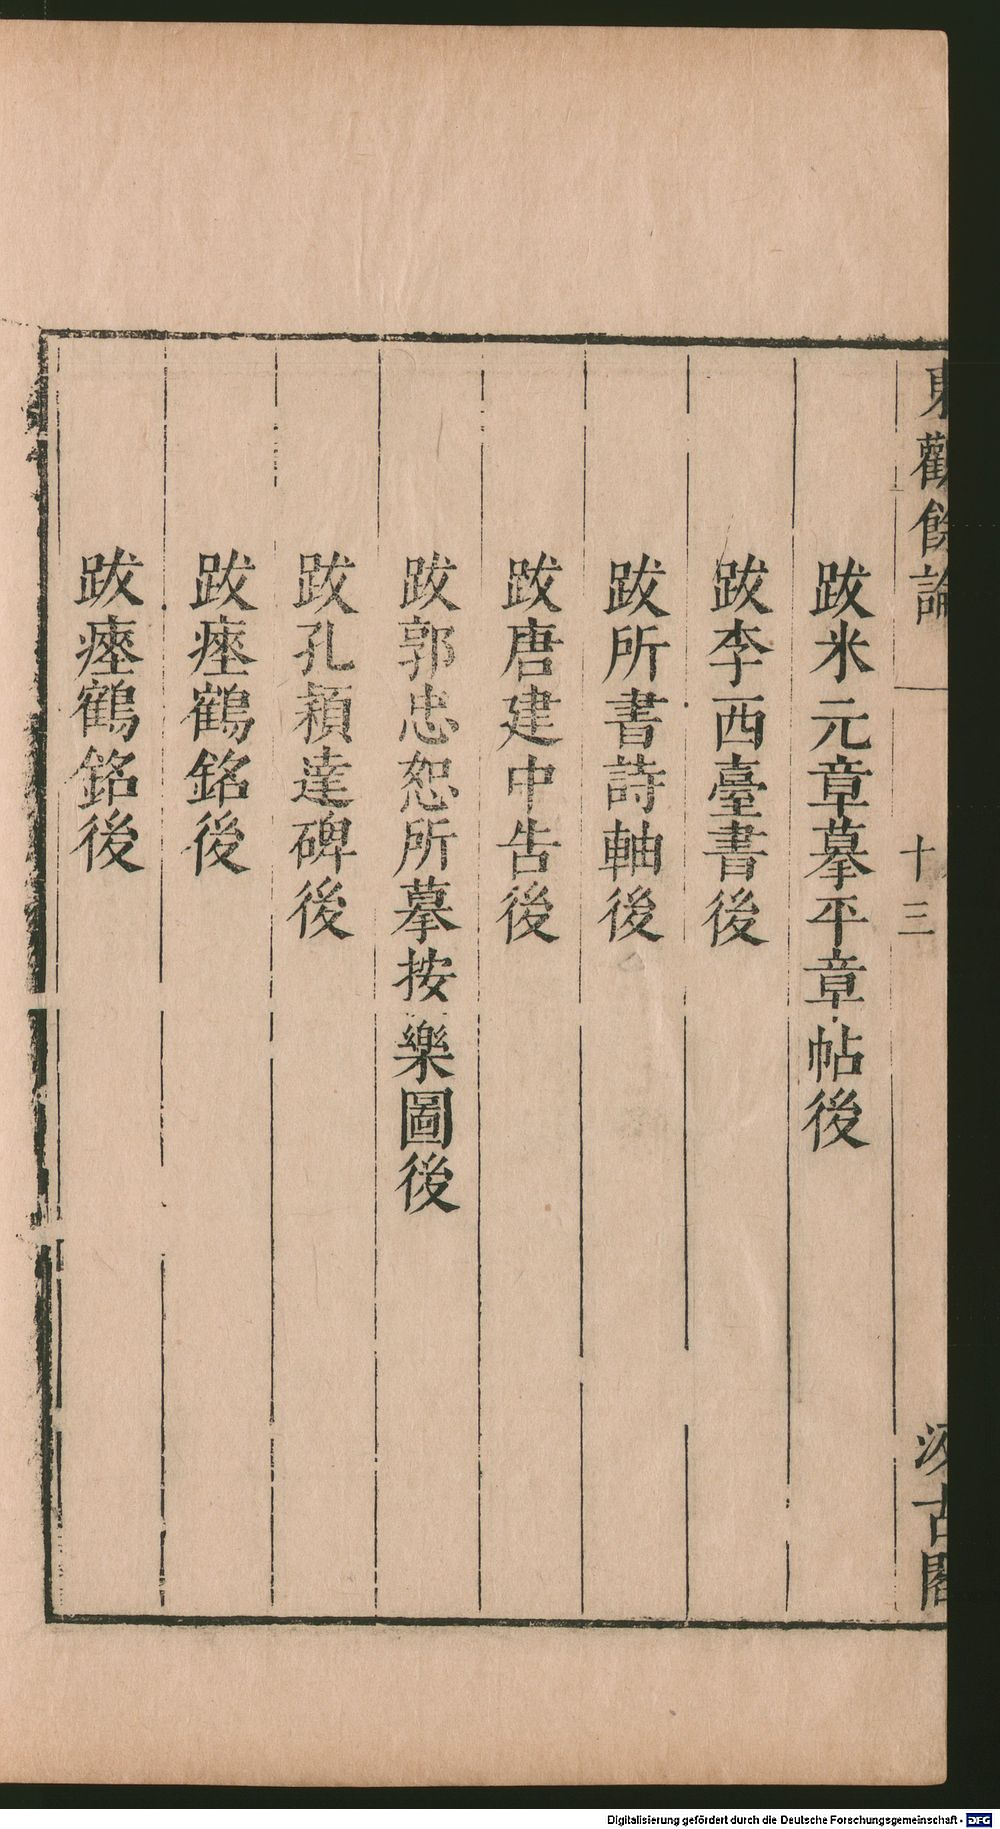 東觀餘論
十三
汲古閣
跋米元章摹平章帖後
跋李西臺書後
跋所書詩軸後
跋唐建中告後
跋郭忠恕所摹按樂圖後
跋孔穎達碑後
跋瘞鶴銘後
跋瘞鶴銘後
Digitalisierung gefördert durch die Deutsche Forschungsgemeinschaft - DFG